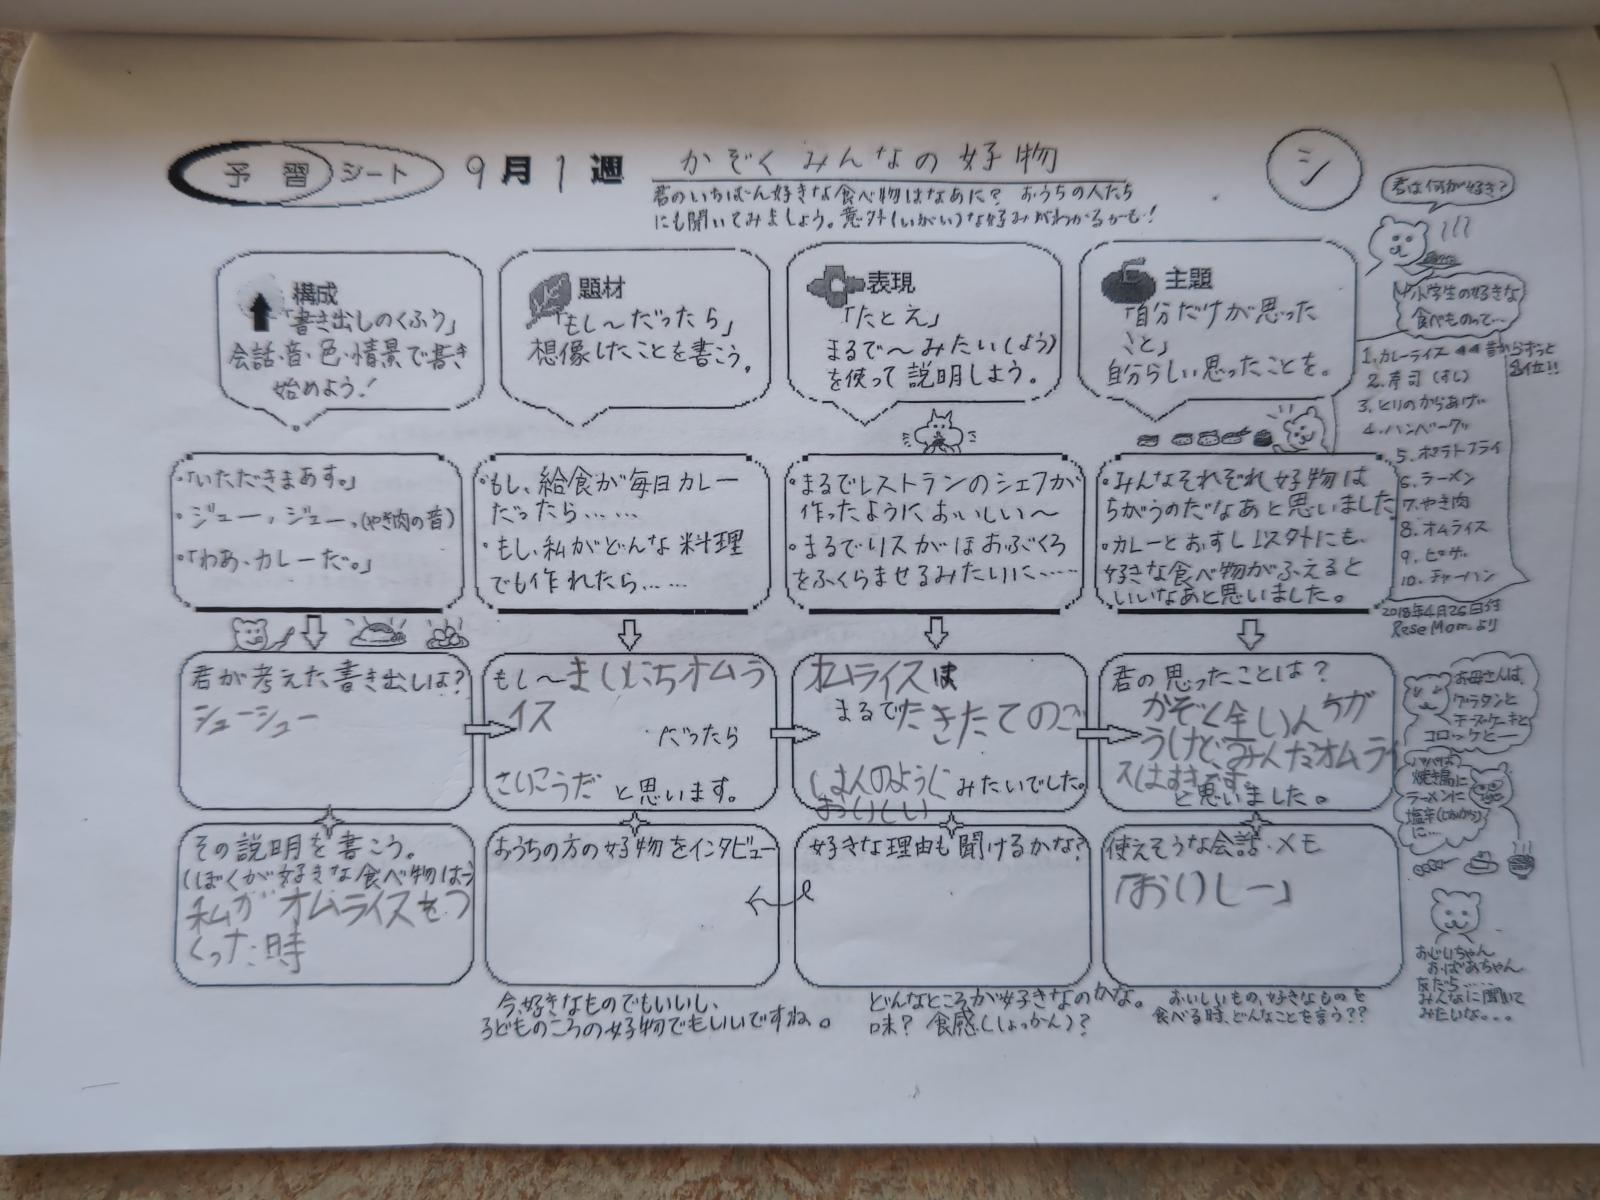 予習シート 9月1週 かぞくみんなの好物
君のいちばん好きな食べ物はなあに? おうちの人たち
にも聞いてみましょう。意外(いがい)な好みがわかるかも!
シ
君は何が好き?
小学生の好きな
食べものって…
1.カレーライス 昔からずっと
1位!!
2.寿司(すし)
3.とりのからあげ
4.ハンバーグ
5.ポテトフライ
6.ラーメン
7.やき肉
8.オムライス
9.ピザ
10.チャーハン
2018年4月26日付
ReseMomより
構成
「書き出しのくふう」
会話・音・色・情景で書き
始めよう!
題材
「もし〜だったら」
想像したことを書こう。
表現
「たとえ」
まるで〜みたい(よう)
を使って説明しよう。
主題
「自分だけが思った
こと」
自分らしい思ったことを。
・「いただきまあす。」
・ジュー、ジュー。(やき肉の音)
・「わあ、カレーだ。」
・もし、給食が毎日カレー
だったら……
・もし、私がどんな料理
でも作れたら……
・まるでレストランのシェフが
作ったようにおいしい〜
・まるでリスがほおぶくろ
をふくらませるみたいに……
・みんなそれぞれ好物は
ちがうのだなあと思いました。
・カレーとおすし以外にも、
好きな食べ物がふえると
いいなあと思いました。
君が考えた書き出しは?
シューシュー
もし〜まいにちオムラ
イス
だったら
さいこうだ と思います。
オムライスは
まるでたきたてのご
はんのように みたいでした。
おいしい
君の思ったことは?
かぞく全いん
うけど、みんなオムライ
スはすきです。
と思いました。
お母さんは、
グラタンと
チーズケーキと
コロッケピー
パパは
焼き鳥に
ラーメンに
塩辛(しおから)
に…
その説明を書こう。
(ぼくが好きな食べ物は…)
私がオムライスをつ
くった時
おうちの方の好物をインタビュー
好きな理由も聞けるかな?
使えそうな会話・メモ
「おいしー」
今、好きなものでもいいし、
子どものころの好物でもいいですね。
どんなところが好きなのかな。
味? 食感(しょっかん)?
おいしいもの、好きなものを
食べる時、どんなことを言う??
おじいちゃん
おばあちゃん
友だち……
みんなに聞いて
みたいな。。。